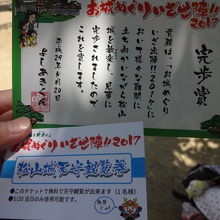 お城めぐりいざ出陣!!2017
完歩賞
貴殿は、「お城めぐり
いざ出陣!!2017」に
おいて様々な難関に
立ち向かいながら松山
城を散策し、見事に
完歩されましたので
これを賞します
平成29年5月20日
よしあきくん
いざ出陣!!2017
松山城天守観覧券
●このチケットで無料で天守観覧が出来ます（1名様）
●5/20当日のみ使用可能です。